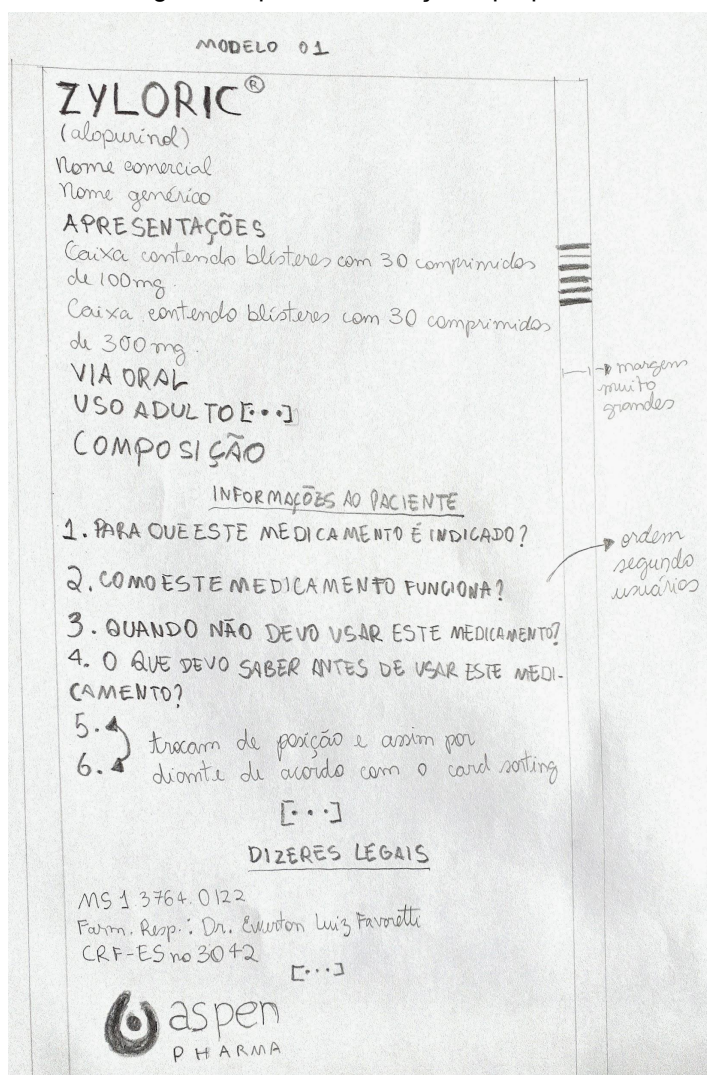 MODELO 01
ZYLORIC®
(alopurinol)
Nome comercial
Nome genérico
APRESENTAÇÕES
Caixa contendo blísteres com 30 comprimidos
de 100mg.
Caixa contendo blísteres com 30 comprimidos
de 300mg.
VIA ORAL
USO ADULTO [...]
COMPOSIÇÃO
margens
muito
grandes
INFORMAÇÕES AO PACIENTE
1. PARA QUE ESTE MEDICAMENTO É INDICADO?
2. COMO ESTE MEDICAMENTO FUNCIONA?
ordem
segundo
usuários
3. QUANDO NÃO DEVO USAR ESTE MEDICAMENTO?
4. O QUE DEVO SABER ANTES DE USAR ESTE MEDI-
CAMENTO?
5.
6.
trocam de posição e assim por
diante de acordo com o card sorting
[...]
DIZERES LEGAIS
MS 1 3764.0122
Farm. Resp.: Dr. Ewerton Luiz Favoretti
CRF-ES no 3042
[...]
aspen
PHARMA